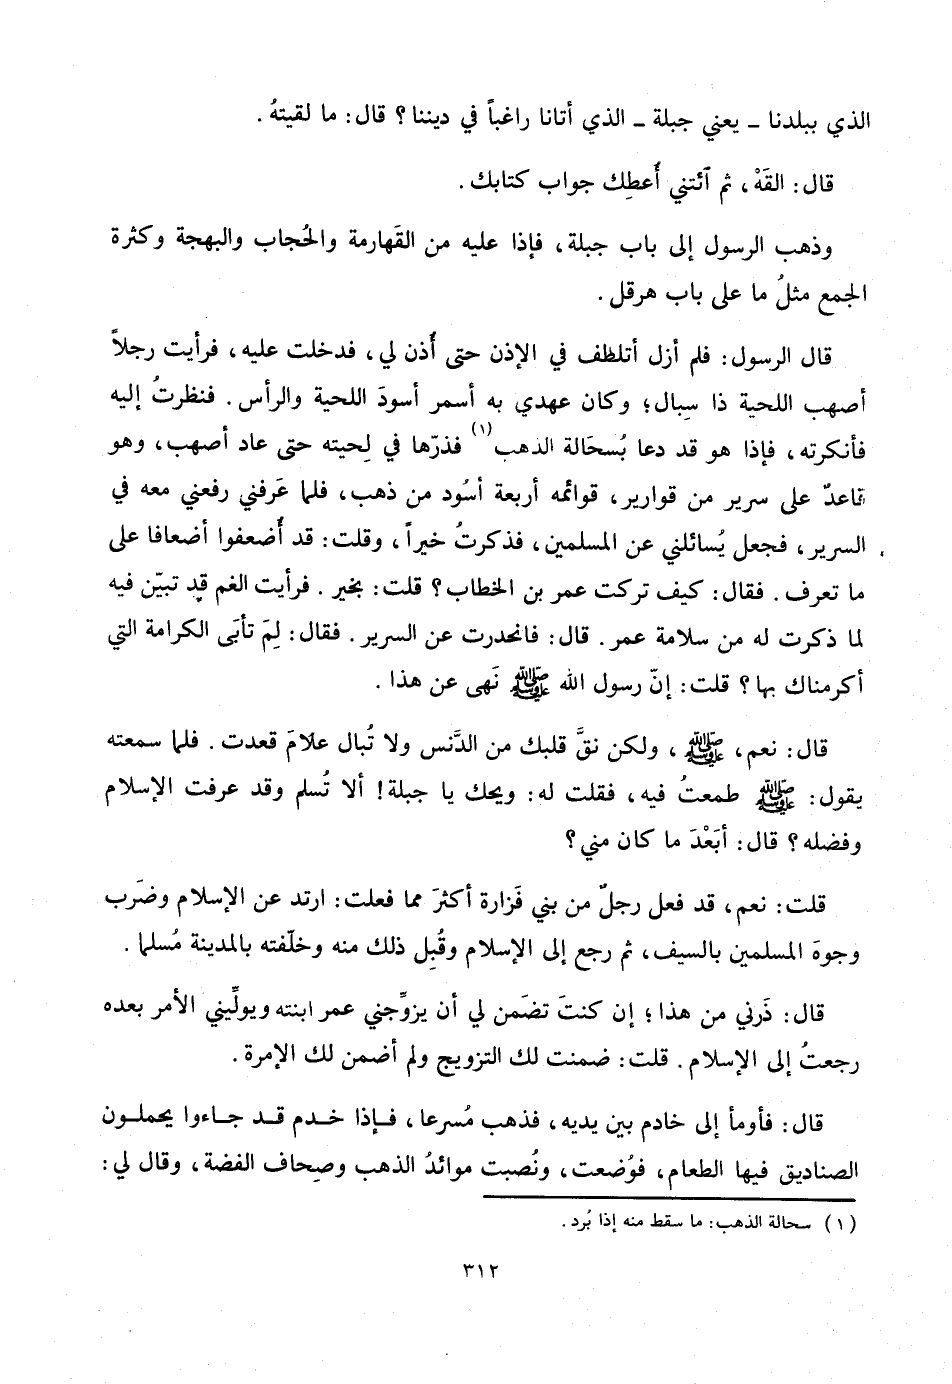 الذي ببلدنا ـ يعني جبلة ـ الذي أتانا راغباً في ديننا؟ قال: ما لقيتهُ.
قال: القَهْ، ثم ٱئتني أُعطِك جواب كتابك.
وذهب الرسول إلى باب جبلة، فإذا عليه من القَهارمة والحُجاب والبهجة وكثرة
الجمع مثلُ ما على باب هرقل.
قال الرسول: فلم أزل أتلظف في الإذن حتى أُذن لي، فدخلت عليه، فرأيت رجلاً
أصهب اللحية ذا سِبال؛ وكان عهدي به أسمر أسودَ اللحية والرأس. فنظرتُ إليه
فأنكرته، فإذا هو قد دعا بُسحَالة الذهب(١) فذرّها في لِحيته حتى عاد أصهب، وهو
قاعدٌ على سرير من قوارير، قوائمه أربعة أسُود من ذهب، فلما عَرفني رفعني معه في
السرير، فجعل يُسائلني عن المسلمين، فذكرتُ خيراً، وقلت: قد أُضعفوا أضعافا على
ما تعرف. فقال: كيف تركت عمر بن الخطاب؟ قلت: بخير. فرأيت الغم قد تبيّن فيه
لما ذكرت له من سلامة عمر. قال: فانحدرت عن السرير. فقال: لِمَ تأبَى الكرامة التي
أكرمناك بها؟ قلت: إنّ رسول الله ﷺ نَهى عن هذا.
قال: نعم، ﷺ، ولكن نقَّ قلبك من الدَّنس ولا تُبال علامَ قعدت. فلما سمعته
يقول: ﷺ طمعتُ فيه، فقلت له: ويحك يا جبلة! ألا تُسلم وقد عرفت الإسلام
وفضله؟ قال: أبَعْدَ ما كان مني؟
قلت: نعم، قد فعل رجلٌ من بني فَزارة أكثرَ مما فعلت: ارتد عن الإسلام وضَرب
وجوهَ المسلمين بالسيف، ثم رجع إلى الإسلام وقُبِل ذلك منه وخلّفته بالمدينة مُسلما.
قال: ذَرني من هذا؛ إن كنتَ تضمَن لي أن يزوِّجني عمر ابنته ويولِّيني الأمر بعده
رجعتُ إلى الإسلام. قلت: ضمنت لك التزويج ولم أضمن لك الإمرة.
قال: فأومأ إلى خادم بين يديه، فذهب مُسرعا، فإذا خدم قد جاءوا يحملون
الصناديق فيها الطعام، فوُضعت، ونُصبت موائدُ الذهب وصِحاف الفضة، وقال لي:
(١) سحالة الذهب: ما سقط منه إذا بُرد.
٣١٢